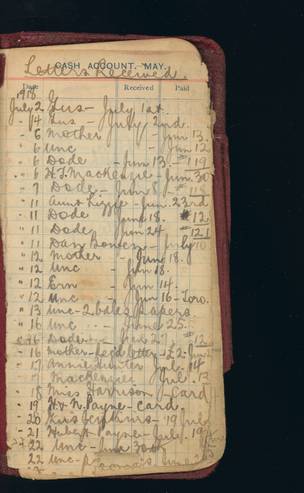 CASH ACCOUNT. MAY.
Letters Received.
Date Received Paid
1918
July 2 Gus - July 1st
" 4 Gus - July 2nd
" 6 Mother - Jun 13
" 6 Unc - Jun 12
" 6 Dode - Jun 13 - #119
" 6 H.J. Mackenzie - Jun. 30
" 7 Dode - Jun 8 #118
" 11 Aunt Lizzie - Jun. 23rd
" 11 Dode June 18. #12
" 11 Dode Jun 24 #121
" 11 Dan - July 10
" 12 Mother - Jun 18.
" 12 Unc - Jun 18.
" 12 Ern - Jun 14.
" 12 Unc Jun 16 - Toro.
" 13 Unc - 2 bales papers
" 16 Unc - June 25
" 16 Dode - #12
" 16 Mother - Regd letter - £2 - Jun
" 17 Annie Hunter
" 17 Mackenzie Jul. 13
" 18 Miss Harrison - Card
" 19 H. & N. Payne - Card.
" 20 Gus Jenkins - 19 July
" 21 Hubert Payne - July 19
" 22 Unc - June 30
" 22 Unc